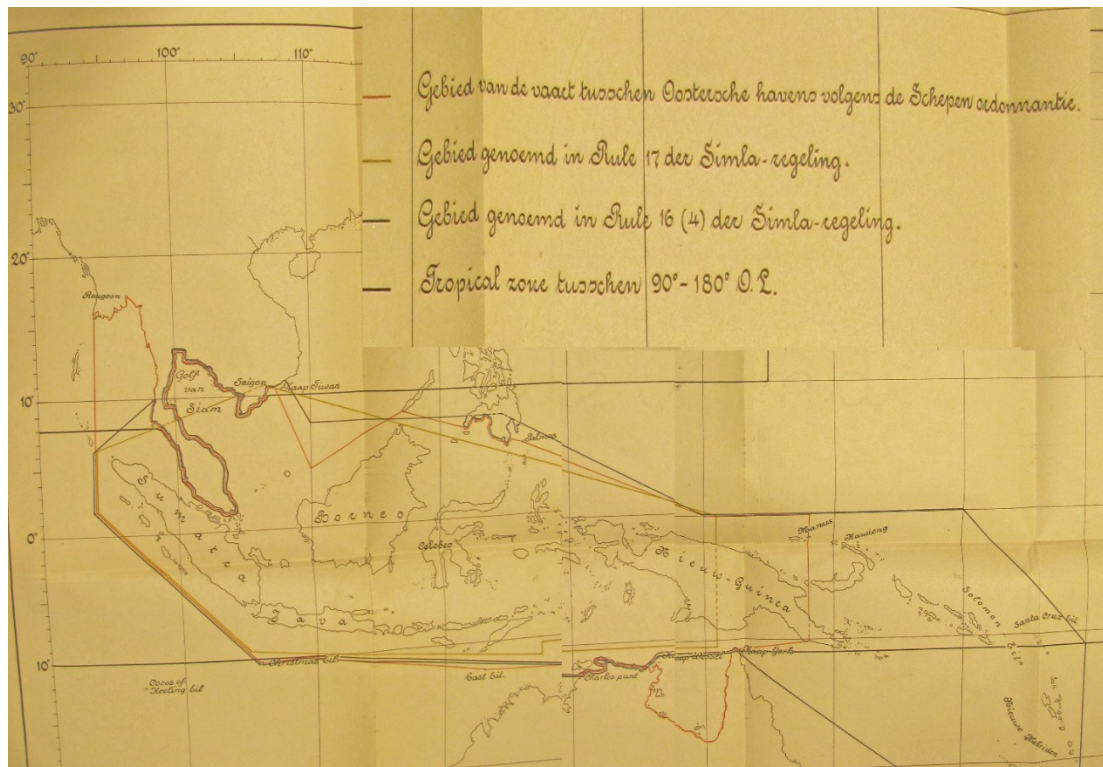 90°
100°
110°
30°
Gebied van de vaart tusschen Oostersche havens volgens de Schepen ordonnantie.
Gebied genoemd in Rule 17 der Simla-regeling.
Gebied genoemd in Rule 16 (4) der Simla-regeling.
20°
Tropical zone tusschen 90°-180° O.L.
Rangoon
Golf
van
Siam
Saigon
Kaap Tusan
10°
Sumatra
Borneo
Celebes
0°
Manus
Kawieng
Nieuw-Guinea
Solomon
Java
Santa Cruz eil.
10°
Christmas eil.
Cocos of
Keeling eil
East eil.
Charles punt
Nieuwe
Hebriden